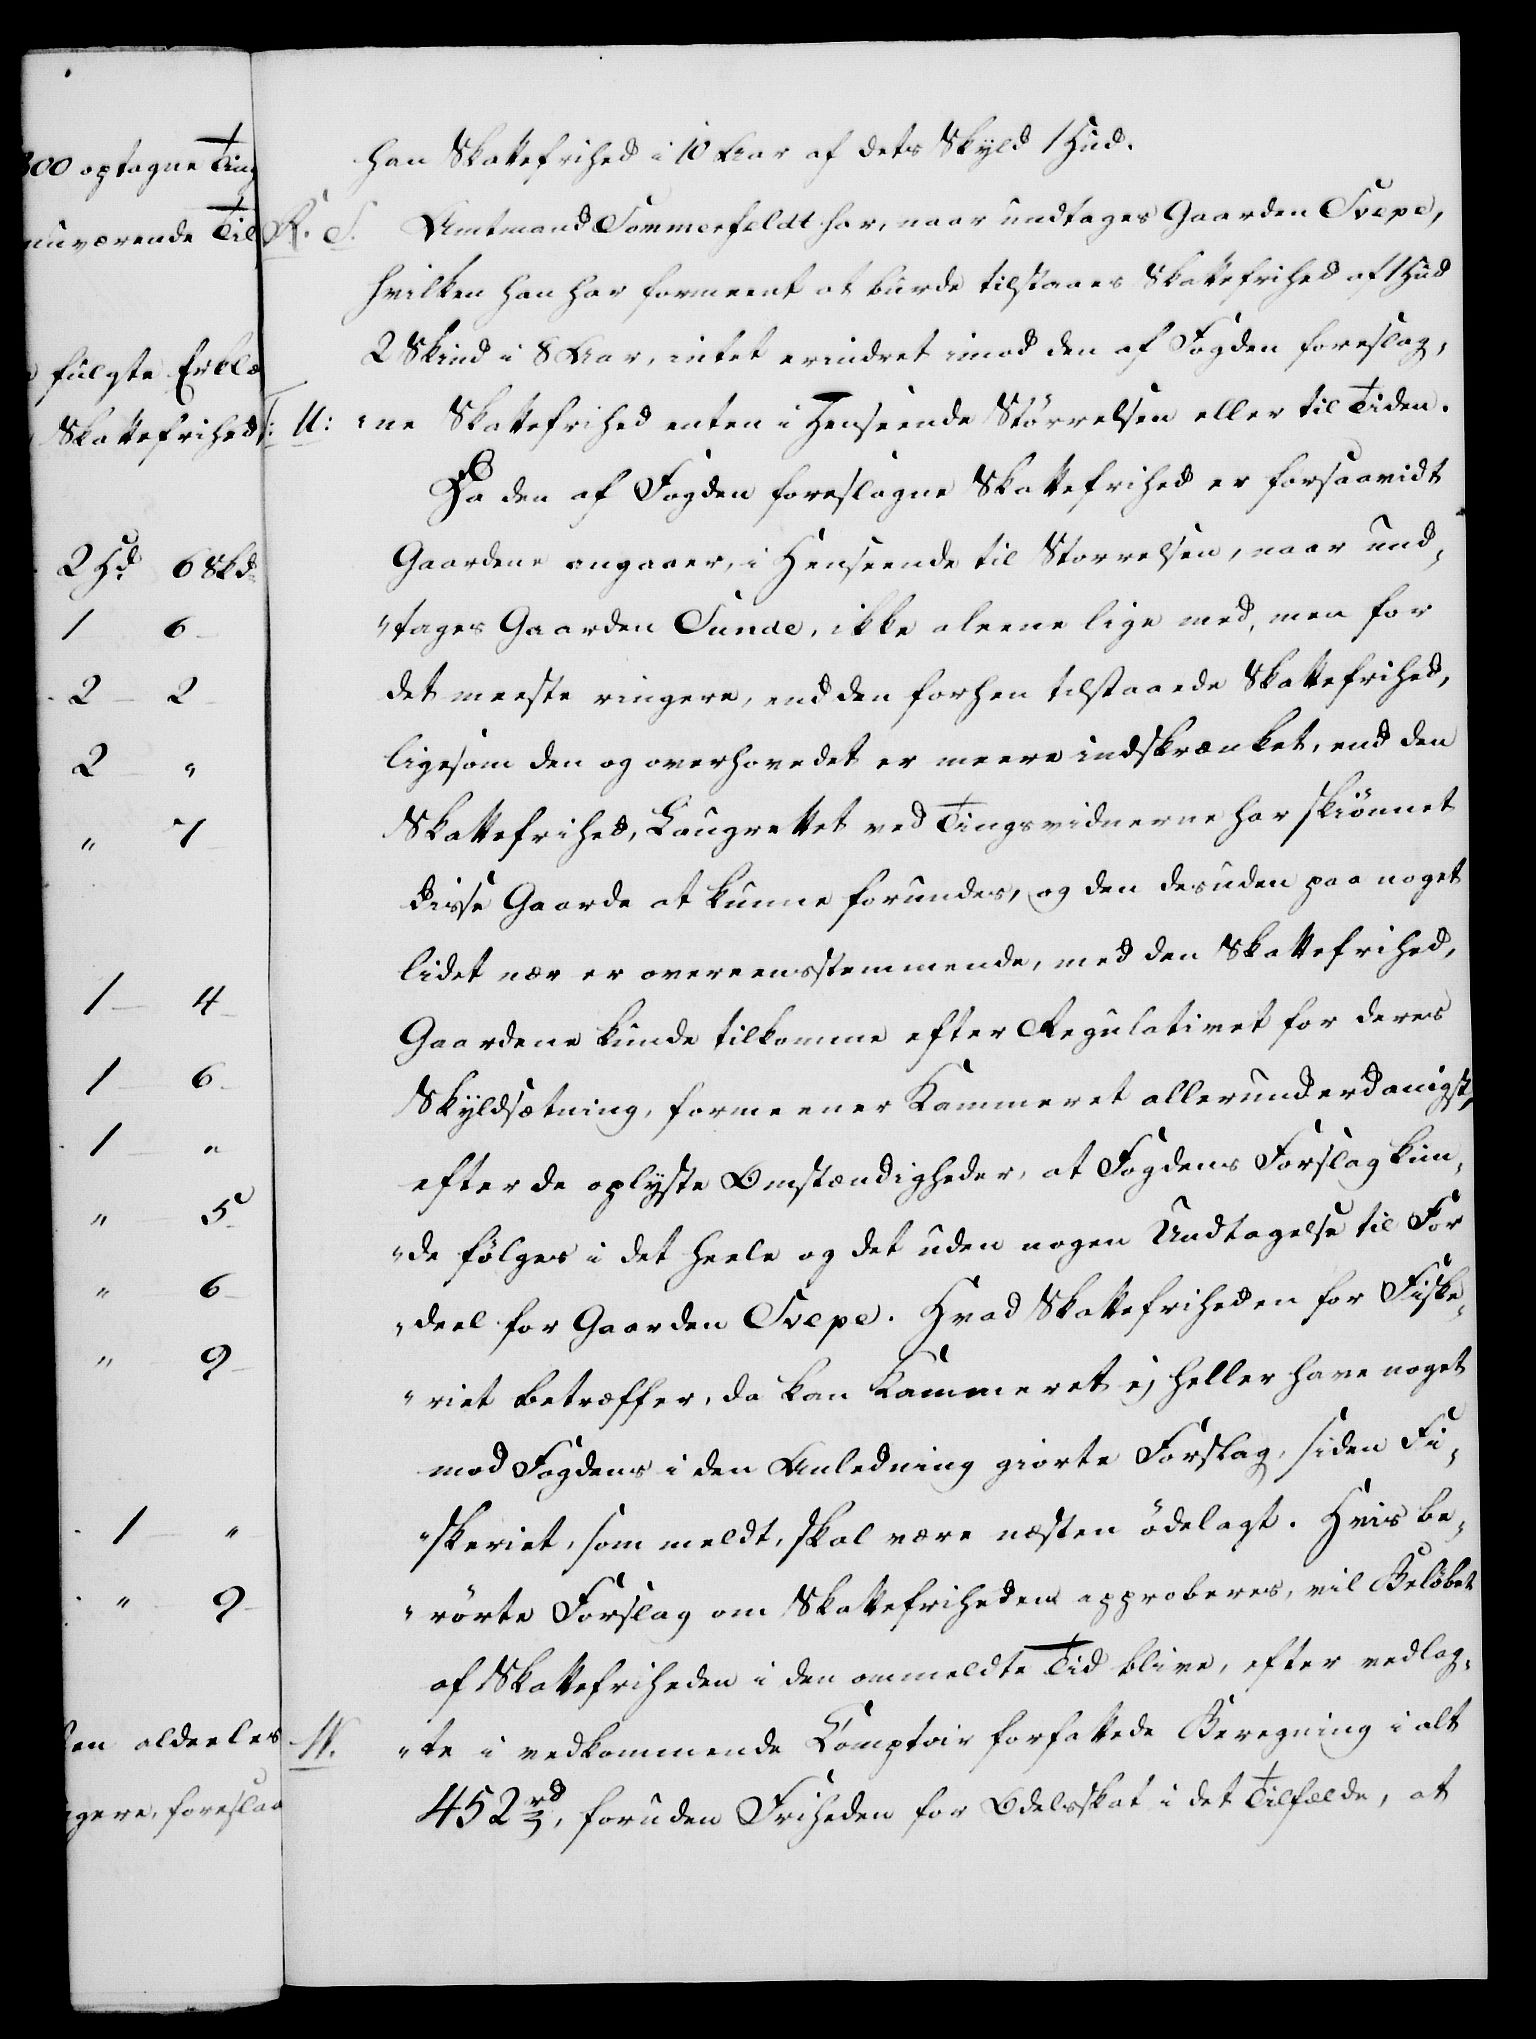 800 optagne Ting
nuværende Til
fulgte Erklæ
Skattefrihed
2 Hd 6 Skd
1 6
2 2
2 "
" 7
1 4
1 6
1 "
" 5
" 6
" 9
1 "
" 9
en aldeeles
gere, foreslaa
han Skattefrihed i 10 Aar af dets Skyld 1 Hud.
R. S. Amtmand Sommerfeldt har, naar undtages Gaarden Svepe,
hvilken han har formeent at burde tilstaaes Skattefrihed af 1 Hud
2 Skind i 8 Aar, intet erindret imod den af Fogden foreslag,
T: U: "ne Skattefrihed enten i Henseende Størrelsen eller til Tiden.
Da den af Fogden foreslagne Skattefrihed er forsaavidt
Gaardene angaaer, i Henseende til Størrelsen, naar und,
"tages Gaarden Sunde, ikke aleene lige med, men for
det meeste ringere, end den forhen tilstaaede Skattefrihed,
ligesom den og overhovedet er meere indskrænket, end den
Skattefrihed, Laugrettet ved Tingsvidnerne har skiønnet
disse Gaarde at kunne forundes, og den desuden paa noget
lidet nær er overeensstemmende, med den Skattefrihed,
Gaardene kunde tilkomme efter Regulativet for deres
Skyldsætning, formeener Kammeret allerunderdanigst,
efter de oplyste Omstændigheder, at Fogdens Forslag kun,
"de følges i det heele og det uden nogen Undtagelse til For
"deel for Gaarden Svepe. Hvad Skattefriheden for Fiske,
"riet betræffer, da kan Kammeret ej heller have noget
mod Fogdens i den Anledning giorte Forslag, siden Fi,
"skeriet, som meldt, skal være næsten ødelagt. Hvis be,
"rørte Forslag om Skattefriheden approberes, vil Beløbet
af Skattefriheden i den ommeldte Tid blive, efter vedlag,
W. "te i vedkommende Comptoir forfattede Beregning i alt
452 rd, foruden Friheden for Odelsskat i det Tilfælde, at